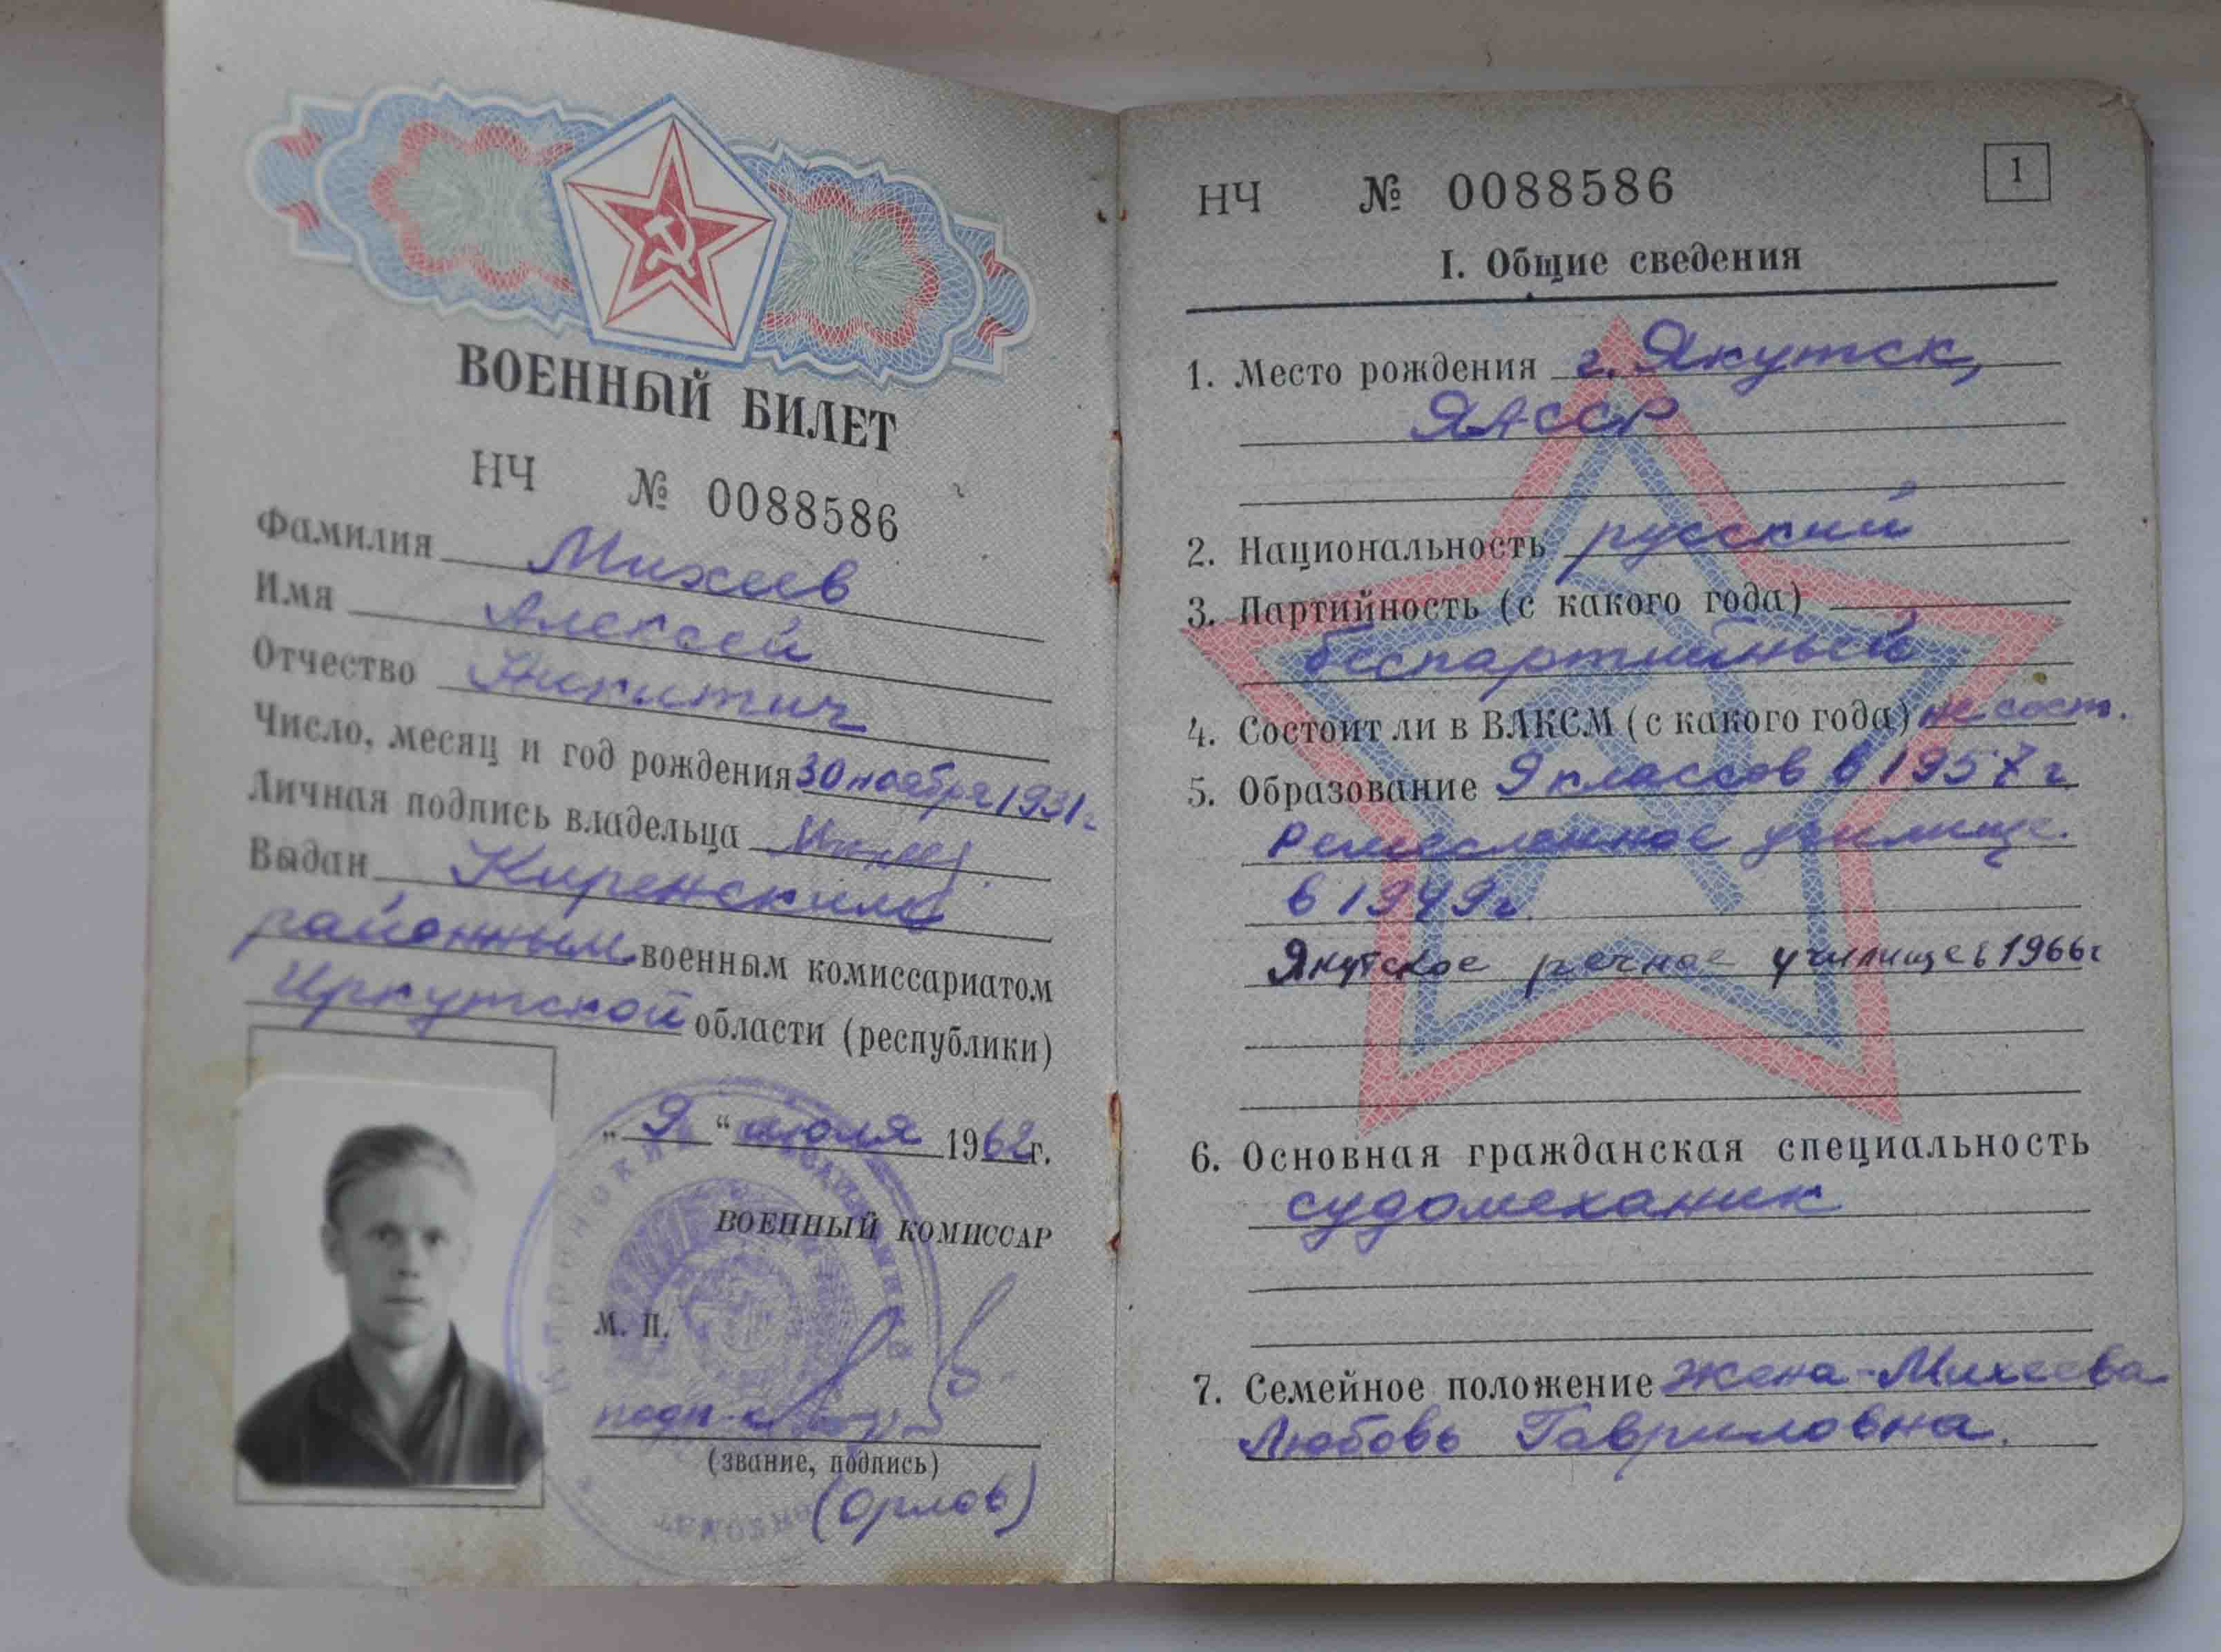 ВОЕННЫЙ БИЛЕТ
НЧ № 0088586
Фамилия Михеев
Имя Алексей
Отчество Никитич
Число, месяц и год рождения 30 ноября 1931г.
Личная подпись владельца Михеев
Выдан Киренским
районным военным комиссариатом
Иркутской области (республики)
„ 9 “ июля 1962г.
ВОЕННЫЙ КОМИССАР
М. П.
(звание, подпись)
(Орлов)
НЧ № 0088586
1
I. Общие сведения
1. Место рождения г. Якутск,
ЯАССР
2. Национальность русский
3. Партийность (с какого года)
беспартийный
4. Состоит ли в ВЛКСМ (с какого года) не сост.
5. Образование 9 классов в 1957 г
Ремесленное училище
в 1949г.
Якутское речное училище в 1966г
6. Основная гражданская специальность
судомеханик
7. Семейное положение жена-Михеева
Любовь Гавриловна.